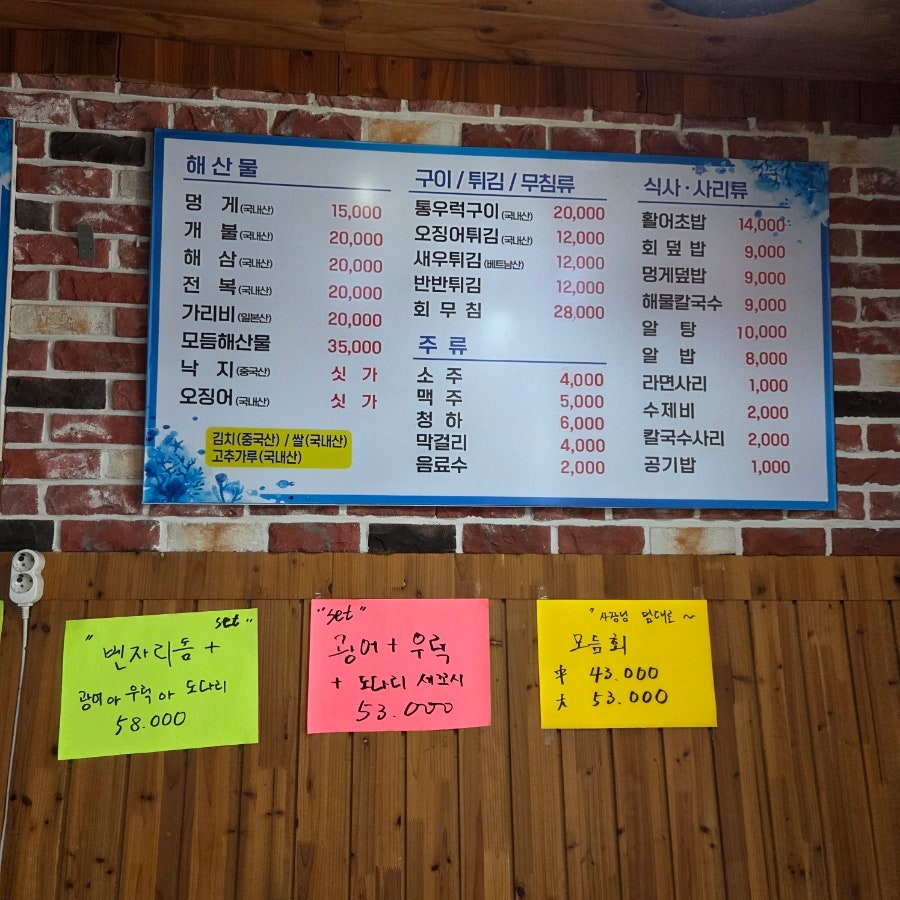 해산물
멍 게(국내산) 15,000
개 불(국내산) 20,000
해 삼(국내산) 20,000
전 복(국내산) 20,000
가리비(일본산) 20,000
모듬해산물 35,000
낙 지(중국산) 싯 가
오징어(국내산) 싯 가
김치(중국산) / 쌀(국내산)
고추가루(국내산)
구이 / 튀김 / 무침류
통우럭구이(국내산) 20,000
오징어튀김(국내산) 12,000
새우튀김(베트남산) 12,000
반반튀김 12,000
회 무 침 28,000
주 류
소 주 4,000
맥 주 5,000
청 하 6,000
막걸리 4,000
음료수 2,000
식사·사리류
활어초밥 14,000
회 덮 밥 9,000
멍게덮밥 9,000
해물칼국수 9,000
알 탕 10,000
알 밥 8,000
라면사리 1,000
수제비 2,000
칼국수사리 2,000
공기밥 1,000
"set"
벤자리돔 +
광어 아 우럭 아 도다리
58.000
"set"
광어 + 우럭
+ 도다리 세꼬시
53.000
"사장님 맘대로 ~
모듬회
中 43.000
大 53.000